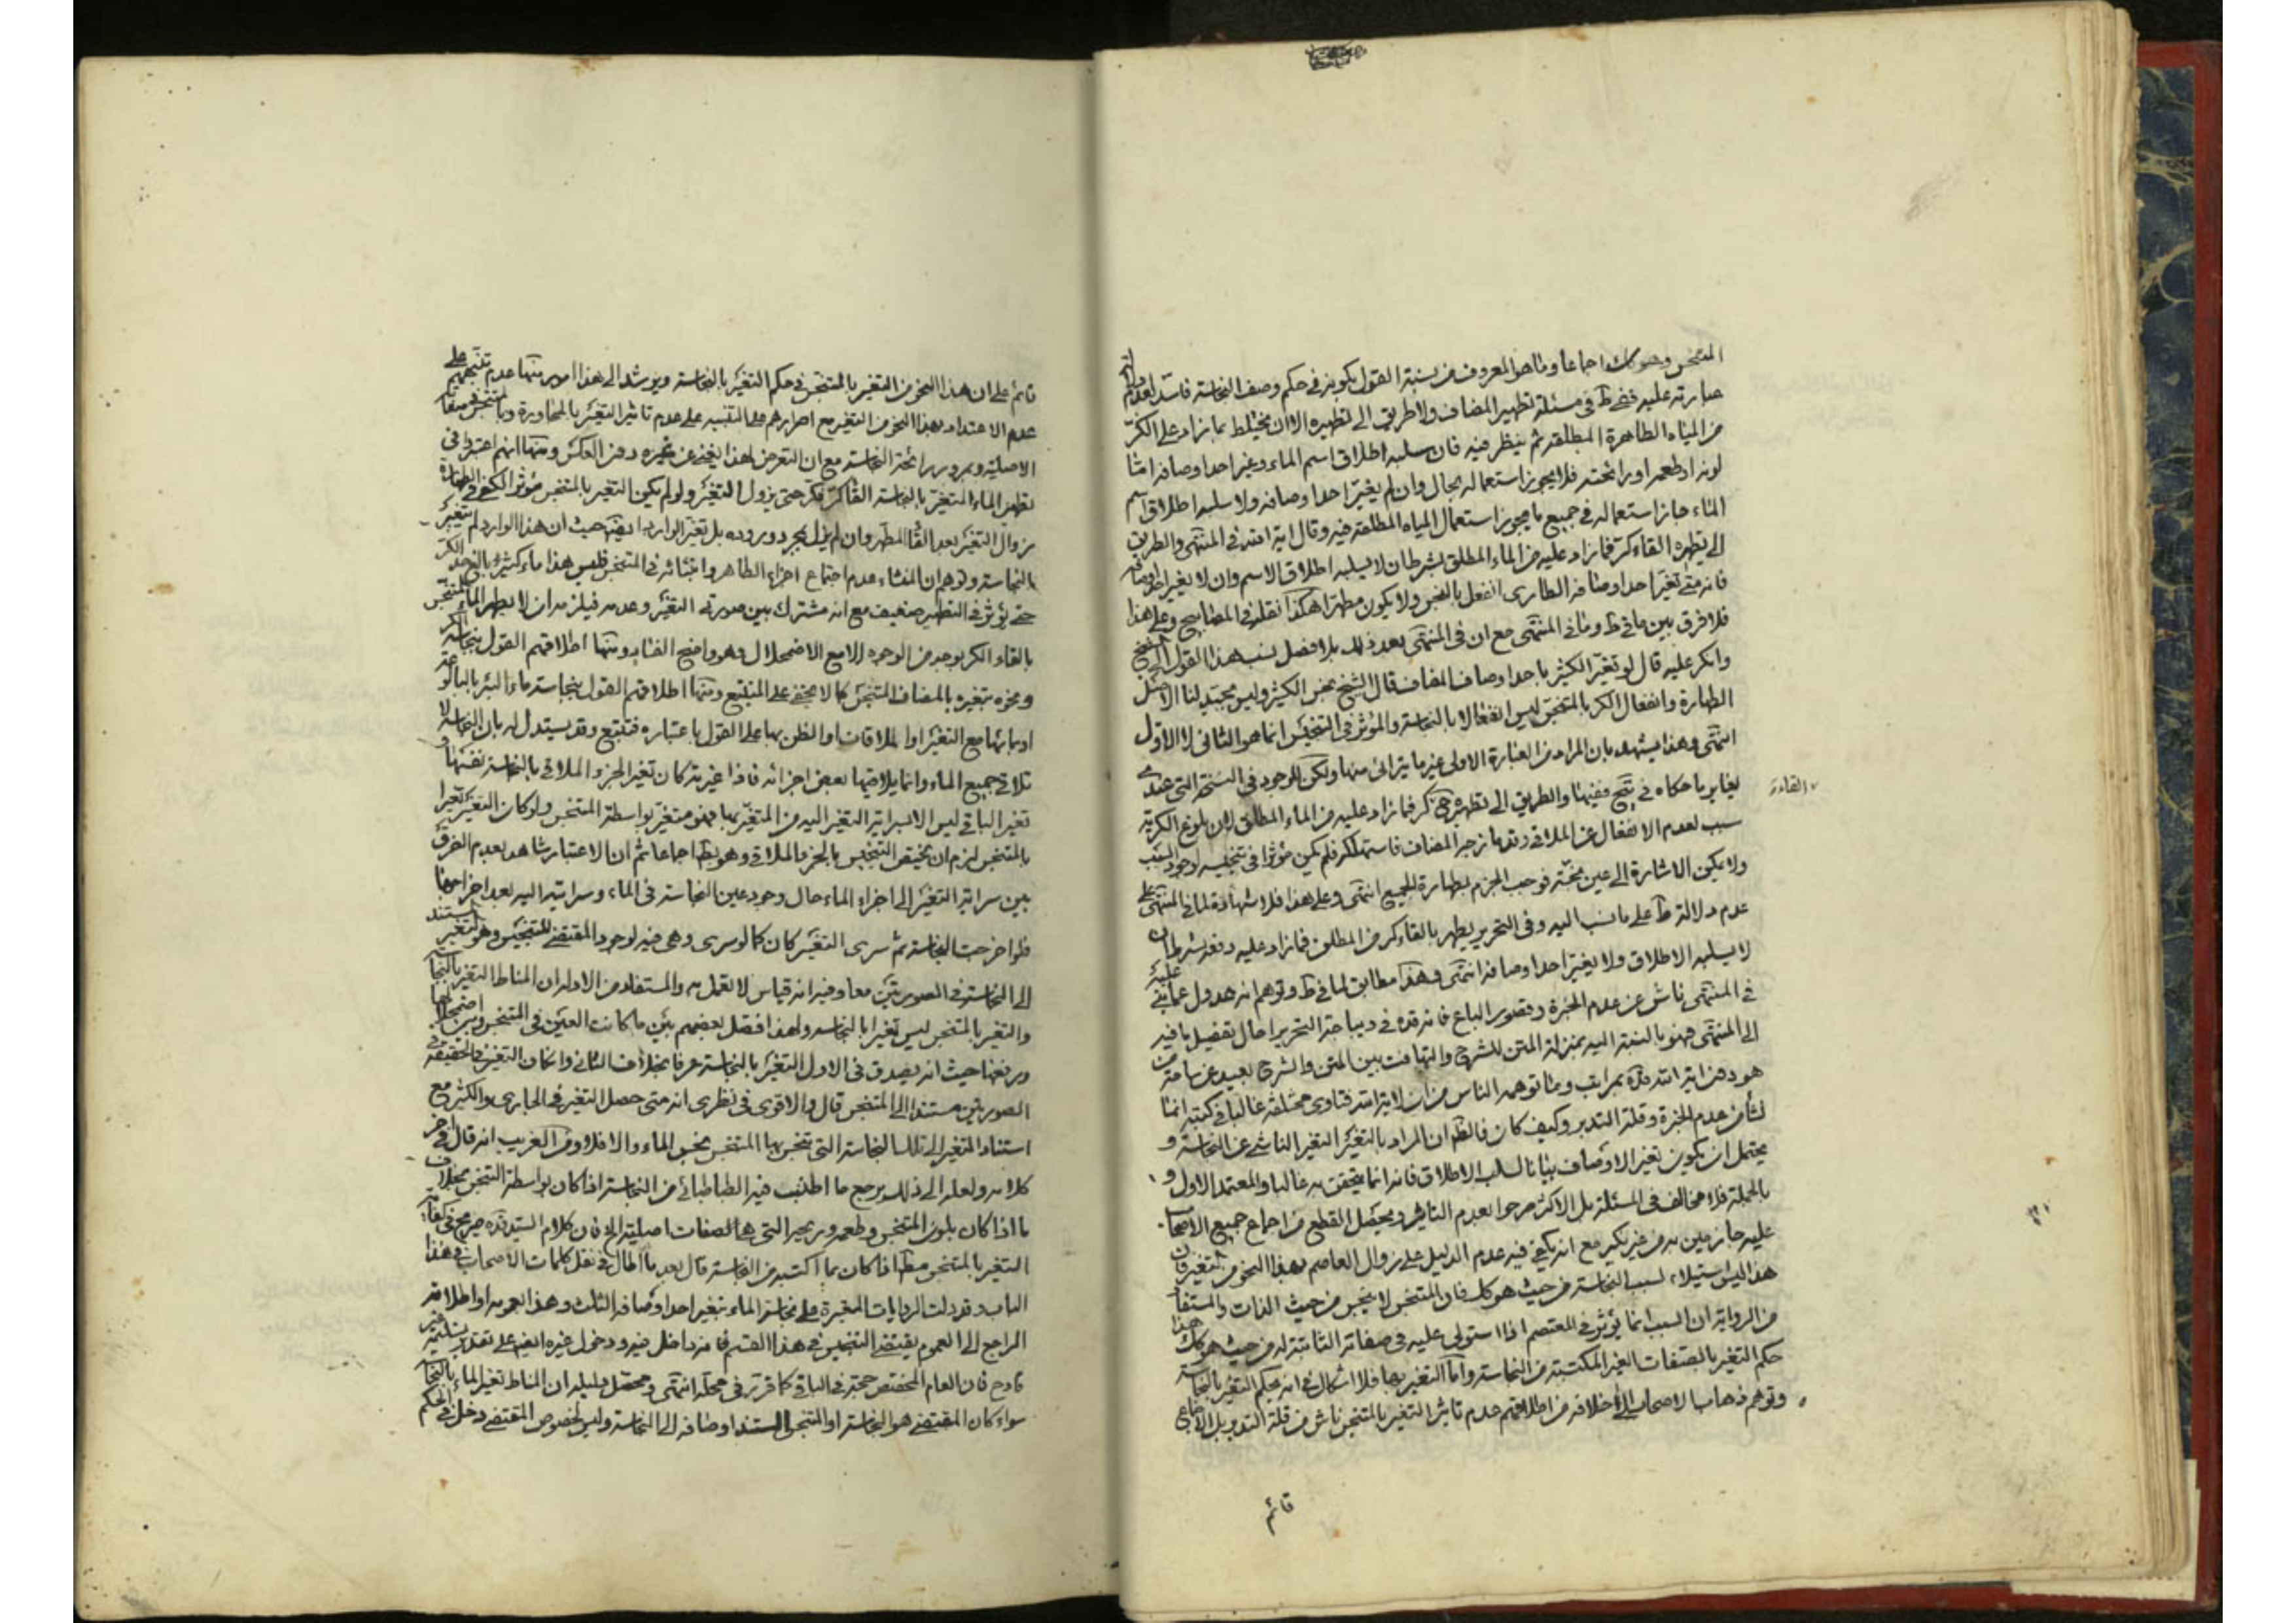 المتنجس وهو كك اجماعا وما هو المعروف من نسبة القول بكونه في حكم وصف النجاسة فاسد لعدم
عبارته عليه ففي ط في مسئلة تطهير المضاف ولا طريق الى تطهيره الا ان يختلط بما زاد على الكر
من المياه الطاهرة المطلقة ثم ينظر فيه فان سلبه اطلاق اسم الماء وغير احد اوصافه اما
لونه او طعمه او رائحته فلا يجوز استعماله بحال وان لم يغير احد اوصافه ولا سلبه اطلاق اسم
الماء جاز استعماله في جميع ما يجوز استعمال المياه المطلقة فيه وقال اية الله في المنتهى والطريق
الى تطهره القاء كر فما زاد عليه من الماء المطلق بشرط ان لا يسلبه اطلاق الاسم وان لا يغير احد اوصافه
فانه متى تغير احد اوصافه الطارى انفعل بالنجس ولا يكون مطهرا هكذا نقله في المصابيح وعلى هذا
فلا فرق بين ما في ط وما في المنتهى مع ان في المنتهى بعد ذلك بلا فصل نسب هذا القول الى الشيخ
وانكر عليه قال لو تغير الكثير باحد اوصاف المضاف قال الشيخ نجس الكثير وليس بجيد لنا الاصل
الطهارة وانفعال الكر بالمتنجس ليس انفعالا بالنجاسة والمؤثر في التنجيس انما هو الثاني لا الاول
انتهى وهذا يشهد بان المراد من العبارة الاولى غير ما يترائى منها ولكن الموجود في النسخة التي عندي
يغاير ما حكاه في ففيها والطريق الى تطهيره ح كر فما زاد عليه من الماء المطلق لان بلوغ الكرية
القاء
سبب لعدم الانفعال عن الملاقي وقد مازجه المضاف فاستهلكه فلم يكن مؤثرا في تنجيسه لوجود السبب
ولا يمكن الاشارة الى عين نجسة فوجب الجزم بطهارة الجميع انتهى وعلى هذا فلا شهادة لما في المنتهى على
عدم دلالة ط على ما نسب اليه وفي التحرير يطهر بالقاء كر من المطلق فما زاد عليه دفعة بشرط ان
لا يسلبه الاطلاق ولا يغير احد اوصافه انتهى وهذا مطابق لما في ط وتوهم انه عدول عما بنى عليه
في المنتهى ناش عن عدم الخبرة وقصور الباع فانه قده في ديباجة التحرير احال تفصيل ما فيه
الى المنتهى فهو بالنسبة اليه بمنزلة المتن للشرح والتهافت بين المتن والشرح بعيد عن ساحة من
هو دون اية الله قده بمراتب وما توهمه الناس من ان لاية الله فتاوى مختلفة غالبا في كتبه انما
نشأ من عدم الخبرة وقلة التدبر وكيف كان فالظ ان المراد بالتغير التغير الناشي عن النجاسة و
يحتمل ان يكون تغير الاوصاف بيانا لسلب الاطلاق فانه انما يتحقق به غالبا والمعتمد الاول و
بالجملة فلا مخالف في المسئلة بل الاكثر صرحوا بعدم التاثير ويحصل القطع من اجماع جميع الاصحاب
عليه جازمين به من غير نكير مع انه يكفي فيه عدم الدليل على زوال العاصم بهذا النحو من التغير فان
هذا ليس استيلاء لسبب النجاسة من حيث هو كك فان المتنجس لا ينجس من حيث الذات والمستفاد
من الرواية ان السبب انما يؤثر في المعتصم اذا استولى عليه في صفاته الثابتة له من حيث هو كك هذا
حكم التغير بالصفات الغير المكتسبة من النجاسة واما التغير بها فلا اشكال في انه بحكم التغير بالنجاسة
وتوهم ذهاب الاصحاب الى خلافه من اطلاقهم عدم تاثير التغير بالمتنجس ناش من قلة التدبر بل الاجماع
قائم
قائم على ان هذا النحو من التغير بالمتنجس في حكم التغير بالنجاسة ويرشد الى هذا امور منها عدم تنبيههم على
عدم الاعتداد بهذا النحو من التغير مع اصرارهم على التنبيه على عدم تاثير التغير بالمجاورة وبالمتنجس في صفاته
الاصلية وبمرور رائحة النجاسة مع ان التعرض لهذا يغني عن غيره دون العكس ومنها انهم اعتبروا في
تطهير الماء المتغير بالنجاسة القاء كر فكر حتى يزول التغير ولو لم يكن التغير بالمتنجس مؤثرا لكفى في الطهارة
زوال التغير بعد القاء المطهر وان لم يزل بمجرد وروده بل تغير الوارد ايضا حيث ان هذا الوارد لم يتغير
بالنجاسة وتوهم ان المنشاء عدم اجتماع اجزاء الطاهر وانبثاثه في المتنجس فليس هذا ماء كثيرا بالغ حد الكر
حتى يؤثر في التطهير ضعيف مع انه مشترك بين صورتي التغير وعدمه فيلزمه ان لا يطهر الماء المتنجس
بالقاء الكر بوجه من الوجوه الا مع الاضمحلال وهو واضح الفساد ومنها اطلاقهم القول بنجاسة الكر
ونحوه بتغيره بالمضاف المتنجس كما لا يخفى على المتتبع ومنها اطلاقهم القول بنجاسة ماء البئر بالبالوعة
او بمائها مع التغير او الملاقات او الظن بها على القول باعتباره فتتبع وقد يستدل له بان النجاسة لا
تلاقي جميع الماء وانما يلاقيها بعض اجزائه فاذا غيرته كان تغير الجزء الملاقي بالنجاسة نفسها و
تغير الباقي ليس الا لسراية التغير اليه من المتغير بها فهو متغير بواسطة المتنجس ولو كان التغير تغيرا
بالمتنجس لزم ان يختص التنجيس بالجزء الملاقي وهو بط اجماعا ثم ان الاعتبار شاهد بعدم الفرق
بين سراية التغير الى اجزاء الماء حال وجود عين النجاسة في الماء وسرايته اليه بعد اخراجها
فلو اخرجت النجاسة ثم سرى التغير كان كما لو سرى وهي فيه لوجود المقتضي للتنجيس وهو التغير المستند
الى النجاسة في الصورتين معا وفيه انه قياس لا نعمل به والمستفاد من الادلة ان المناط التغير بالنجاسة
والتغير بالمتنجس ليس تغيرا بالنجاسة ولهذا فصل بعضهم بين ما كانت العين في المتنجس وبين اضمحلالها
ورفعها حيث انه يصدق في الاول التغير بالنجاسة عرفا بخلاف الثاني وان كان التغير في الحقيقة في
الصورتين مستندا الى المتنجس قال والاقوى في نظري انه متى حصل التغير في الجاري والكثير مع
استناد المتغير الى تلك النجاسة التي تنجس بها المتنجس نجس الماء والا فلا ومن الغريب انه قال في اخر
كلامه ولعله الى ذلك يرجع ما اطنب فيه الطباطبائي من النجاسة اذا كان بواسطة التنجس بخلاف
ما اذا كان بلون المتنجس وطعمه وريحه التي هي الصفات اصلية الخ فان كلام السيد قده صريح في كفاية
التغير بالمتنجس مطلقا اذا كان بما اكتسبه من النجاسة قال بعد ما اطال في نقل كلمات الاصحاب في هذا
الباب وقد دلت الروايات المعتبرة على نجاسة الماء بتغير احد اوصافه الثلث وهذا بعمومه او اطلاقه
الراجع الى العموم يقتضي التنجيس في هذا القسم فانه داخل فيه ودخول غيره ايضا على تقدير تسليمه غير
قادح فان العام المخصص حجة في الباقي كما قرر في محله انتهى ومحصل دليله ان المناط تغير الماء بالنجاسة
سواء كان المقتضي هو النجاسة او المتنجس المستند اوصافه الى النجاسة وليس لخصوص المقتضي دخل في الحكم